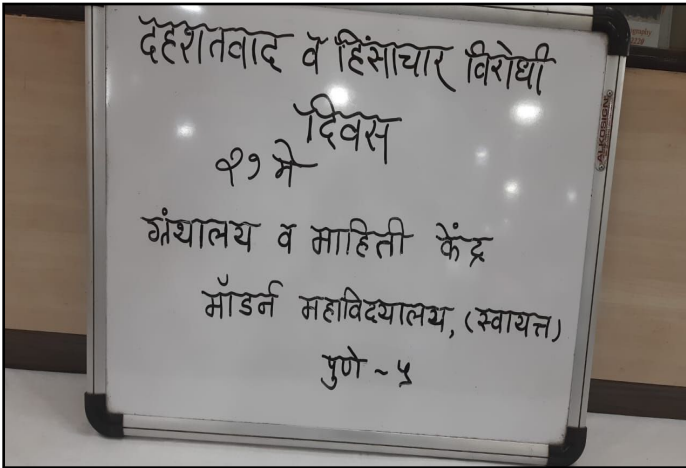 दहशतवाद व हिंसाचार विरोधी
दिवस
२१ मे
ग्रंथालय व माहिती केंद्र
मॉडर्न महाविदयालय, (स्वायत्त)
पुणे ~ ५
ALKOSIGN